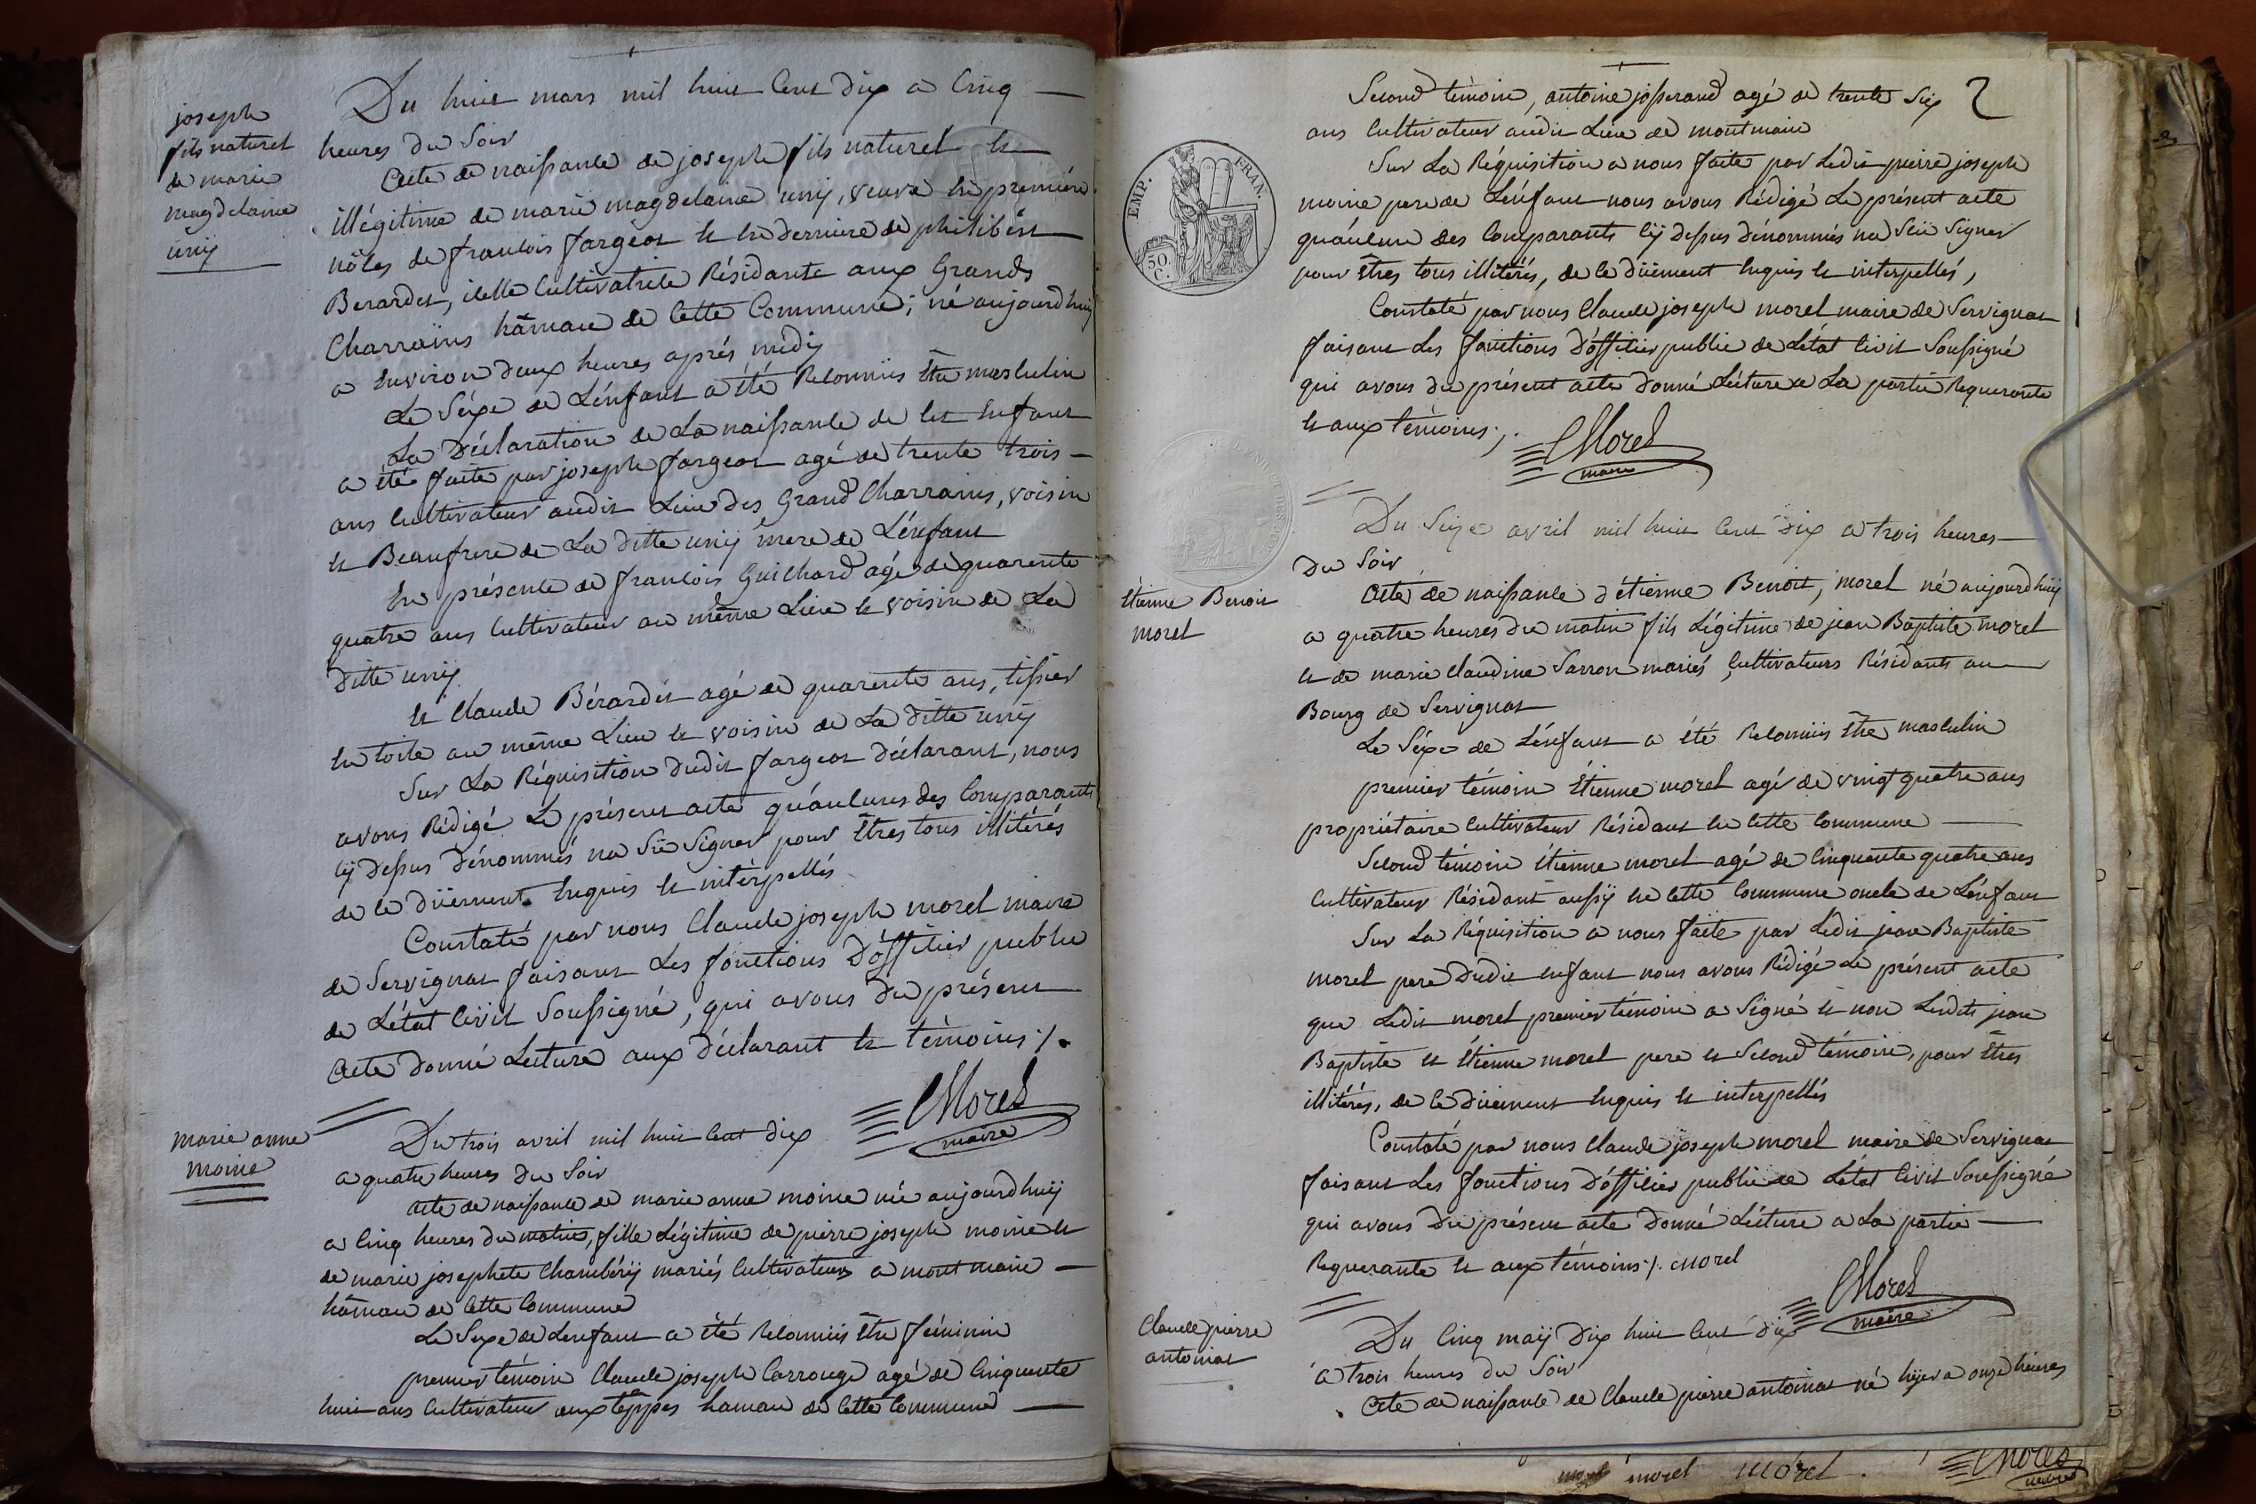 joseph
fils naturel
de marie
magdelaine
uny
Du huit mars mil huit Cent dix a Cinq
heures du Soir
Acte de naissance de joseph fils naturel et
illégitime de marie magdelaine uny, veuve en première
nôces de francois fargeot et en derniere de philibért
Berardet, icelle Cultivatrice Résidante aux Grands
Charrains hâmeau de Cette Commune; né aujourd'huy
a Environ deux heures aprés midy
Le Séxe de L'énfant a été Reconnüs être masculin
La Déclaration de La naissance de Cet Enfant
a été faite par joseph fargeot agé de trente trois
ans Cultivateur audit Lieu des Grand Charrains, voisin
et Beaufrere de La ditte uny mere de L'énfant
En présence de francois Guichard agé de quarente
quatre ans Cultivateur au même Lieu et voisin de La
ditte uny
et Claude Bérardet agé de quarente ans, tissier
en toile au même Lieu et voisin de La ditte uny
Sur La Réquisition dudit fargeot déclarant, nous
avons Rédigé Le présent acte qu'aucuns des Comparants
cy dessus dénommés na Sçü Signer pour êtres tous illitérés
de ce düement Enquis et intérpellés
Constaté par nous Claude joseph morel maire
de Servignat faisant Les fonctions D'officier public
de L'état Civil Soussigné, qui avons du présent
acte donné Lecture aux déclarant et témoins ⁒.
CMorel
maire
marie anne
moine
Du trois avril mil huit Cent dix
a quatre heures du Soir
acte de naissance de marie anne moine née aujourd'huy
a Cinq heures du matin, fille Légitime de pierre joseph moine et
de marie josephete Chambéry mariés Cultivateurs a mont main
hâmeau de Cette Commune
Le Sexe de L'enfant a été Reconnüs être féminin
premier témoin Claude joseph Carrouge agé de Cinquente
huit ans Cultivateur aux hameau de Cette Commune
2
Second témoin, antoine josserand agé de trente Six
ans Cultivateur audit Lieu de montmain
Sur La Réquisition a nous faite par Ledit pierre joseph
moine pere de L'énfant nous avons Rédigé Le présent acte
qu'aucun des Comparants cy dessus dénommés na Sçü Signer
pour êtres tous illitérés, de ce düement Enquis et interpellés,
Constaté par nous Claude joseph morel maire de Servignat
faisant Les fonctions D'officier public de L'état Civil Soussigné
qui avons du présent acte donné Lécture a La partie Requerante
et aux témoins ⁒.
CMorel
maire
EMP. FRAN.
50 C.
Etienne Benoit
morel
Du Seize avril mil huit Cent dix a trois heures
du Soir
Acte de naissance d'étienne Benoit, morel né aujourd'huy
a quatre heures du matin fils Légitime de jean Baptiste morel
et de marie Claudine Sarron mariés, Cultivateurs Résidants au
Bourg de Servignat
Le Séxe de L'énfant a été Reconnüs être masculin
premier témoin Etienne morel agé de vingt quatre ans
propriétaire Cultivateur Résidant en Cette Commune
Second témoin étienne morel agé de Cinquente quatre ans
Cultivateur Résidant aussy en Cette Commune oncle de L'énfant
Sur La Réquisition a nous faite par Ledit jean Baptiste
morel pere dudit enfant nous avons Rédigé Le présent acte
que Ledit morel premier témoin a Signé et non Lesdits jean
Baptiste et Etienne morel pere et Second témoin, pour êtres
illitérés, de ce düement Enquis et interpellés
Constaté par nous Claude joseph morel maire de Servignat
faisant Les fonctions D'officier public de L'état Civil Soussigné
qui avons du présent acte donné Lécture a La partie
Requerante et aux témoins ⁒. morel
CMorel
maire
Claude pierre
antoinat
Du Cinq maÿ dix huit Cent dix
a trois heures du Soir
Acte de naissance de Claude pierre antoinat né hyer a onze heures
morel morel
CMorel
maire